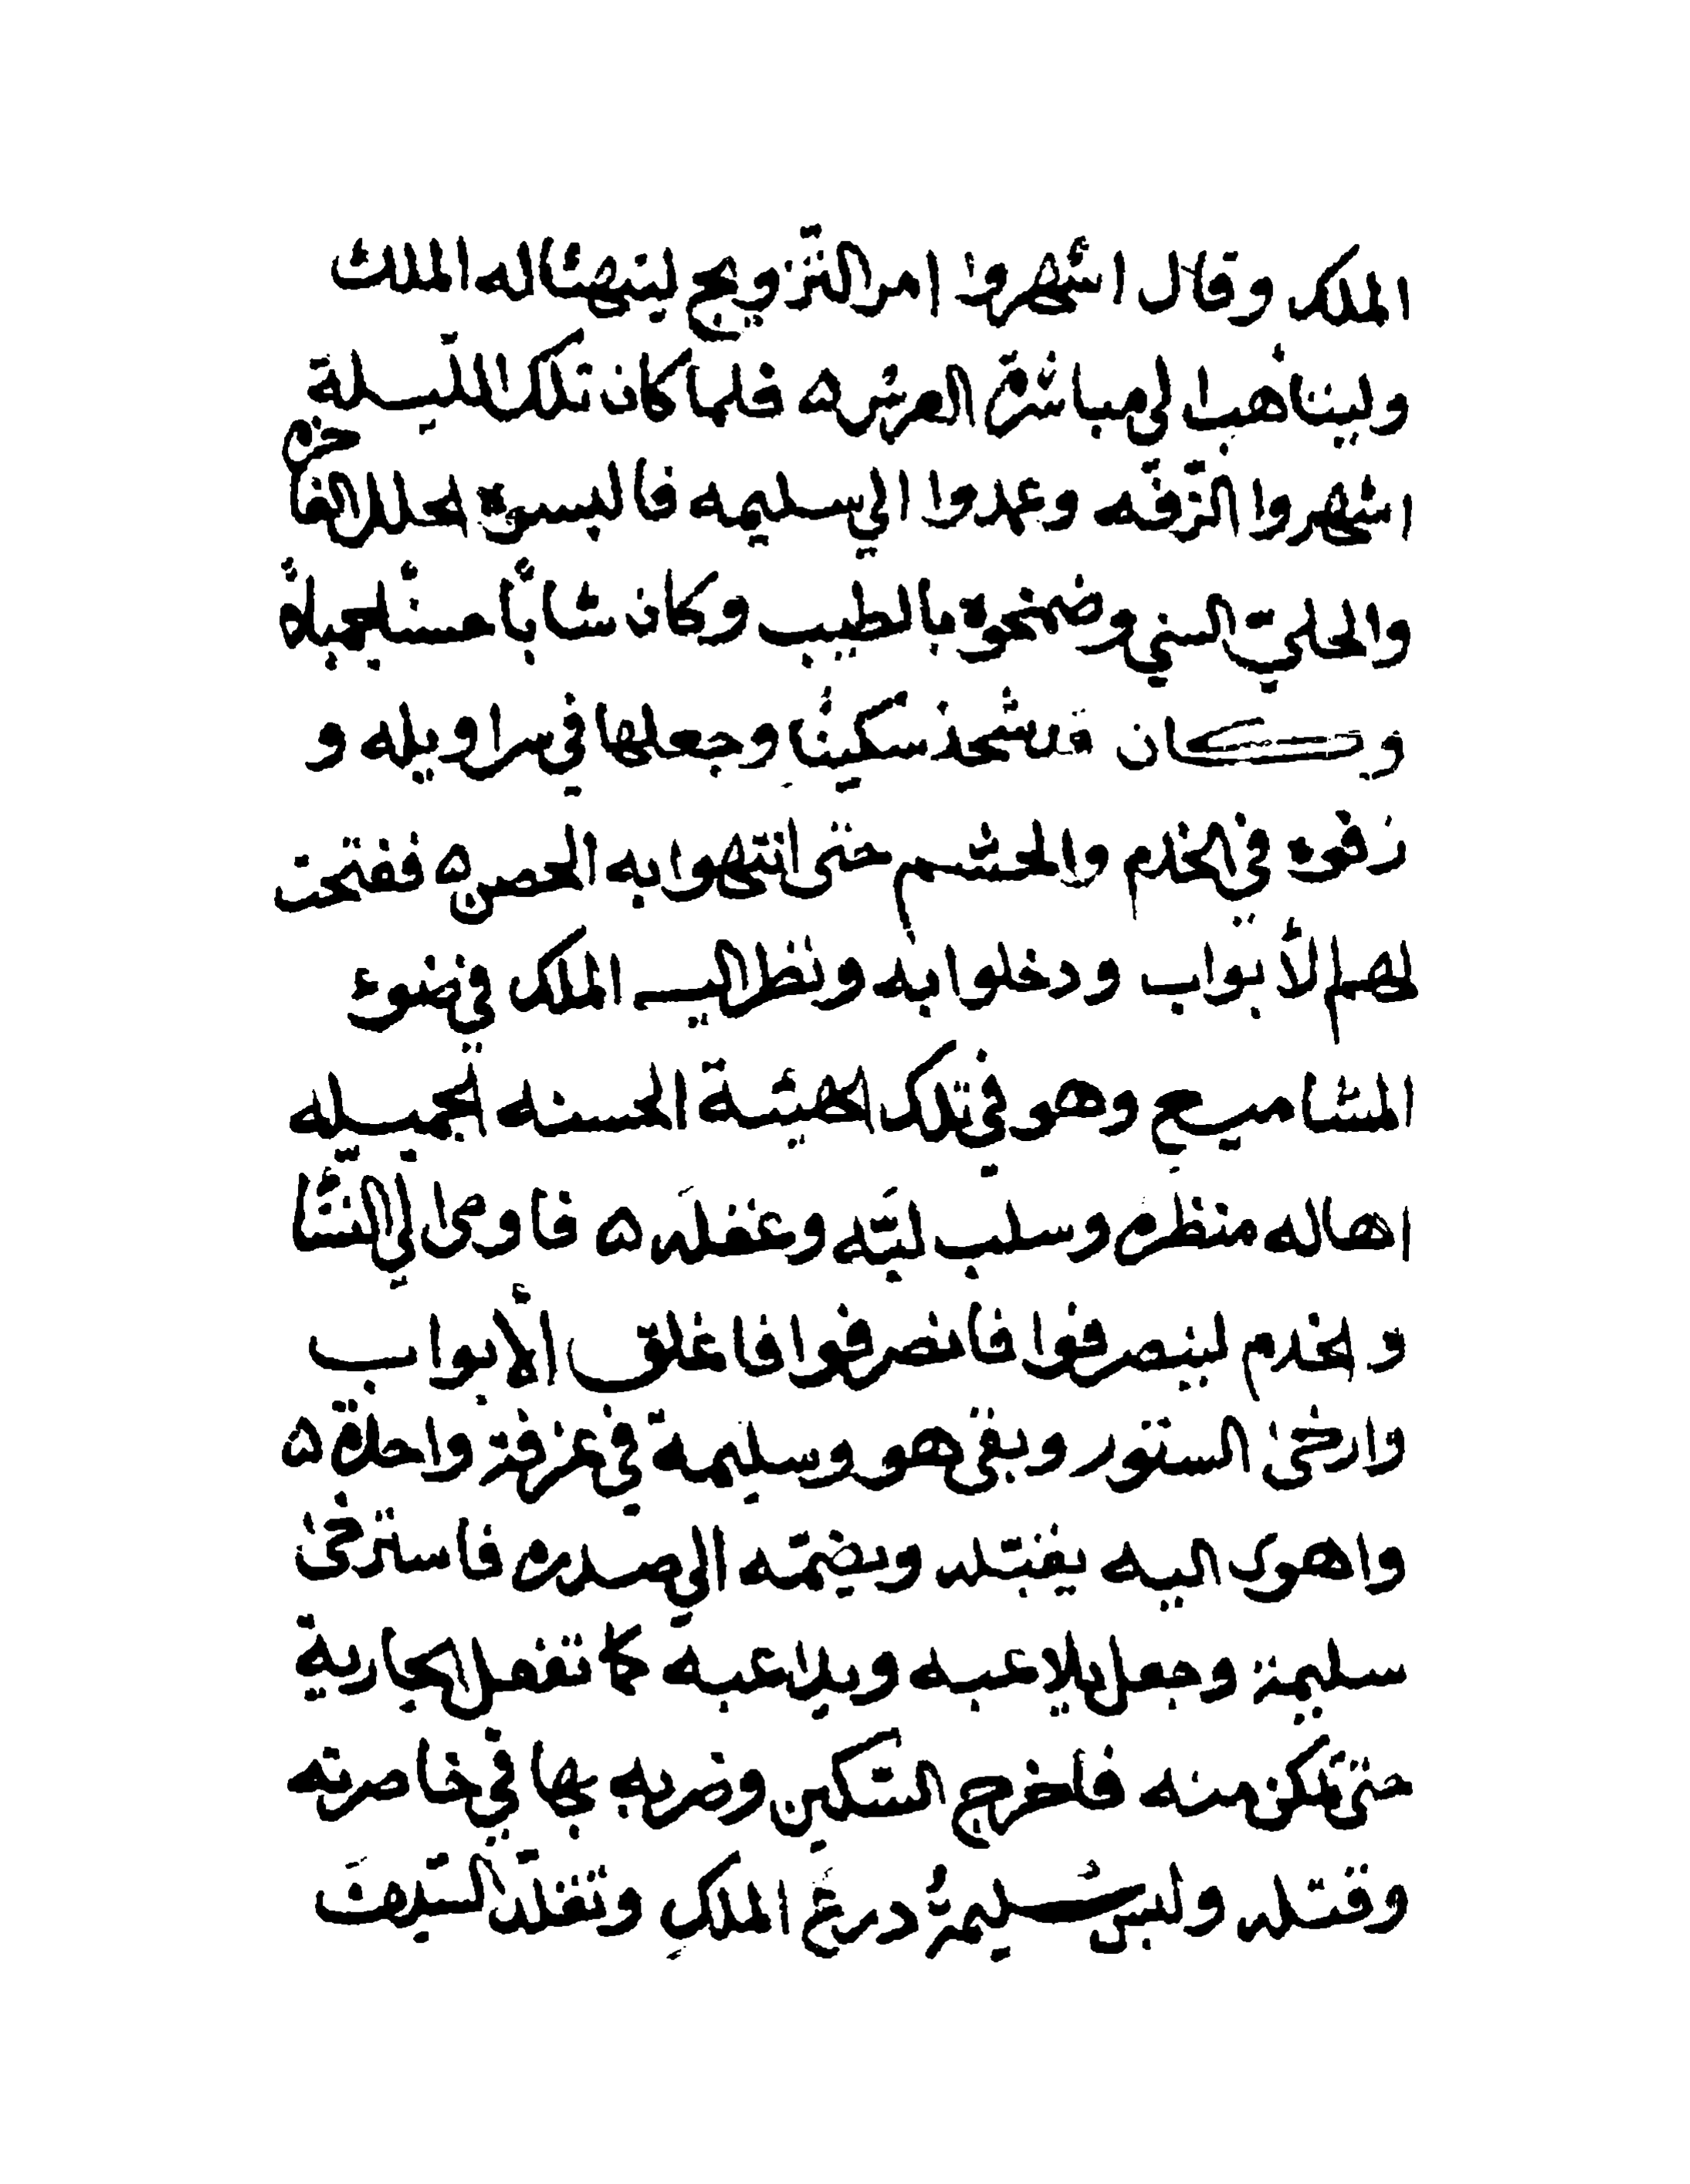 الملك وقال اشهروا امر التّزويج ليتهيئا له الملك
وليتأهب الي مباشرة العرس ۵ فلما كان تلك اللّيلة
اشهروا الزّفّه وعمدوا الي سليمه فالبسوه الحلل الفاخره
والحليّ السني وضمخوه بالطيب وكان شابًّا حسنًا جميلاً
وكان قد شحذ سكينًا وجعلها في سراويله و
زفوه في الخدم والحشم حتى انتهوا به الحصن ۵ ففتحت
لهم الأبواب ودخلوا به ونظر اليه الملك في ضوء
المشاميع وهو في تلك الهيئة الحسنه الجميله
اهاله منظره وسلب لبّه وعقله ۵ فاومى الي النسّا
والخدم لينصرفوا فانصرفوا فاغلق الأبواب
وارخى الستور وبقي هو وسليمة في غرفة واحدة ۵
واهوى اليه يقبّله ويضمّه الي صدره فاسترخى
سليمة وجعل يلاعبه ويلاعبه كما تفعل الجارية
حتى تمكن منه فاخرج السّكين وضربه بها في خاصرته
وقتله ولبس سُليمةُ درعَ الملكِ وتقلّد السّيفَ